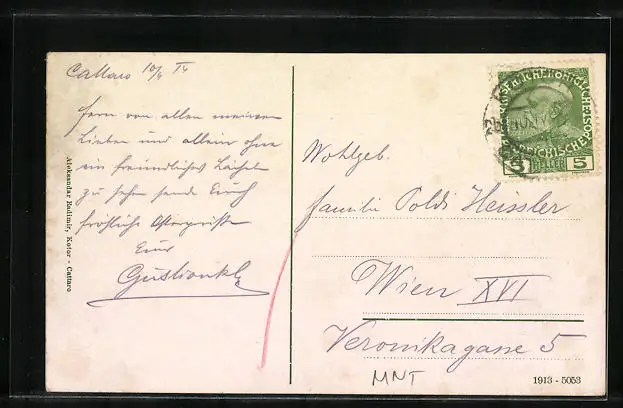 Cattaro 10/4 14
Fern von allen meinen
Lieben und allein ohne
ein freundliches Lächeln
zu sehen sende Euch
fröhliche Ostergrüße
Euer
Aleksandar Radimir, Kotor - Cattaro
Wohlgeb.
Familie Poldi Heissler
Wien XVI
Veronikagasse 5
MNT
1913 - 5053
5 HELLER 5